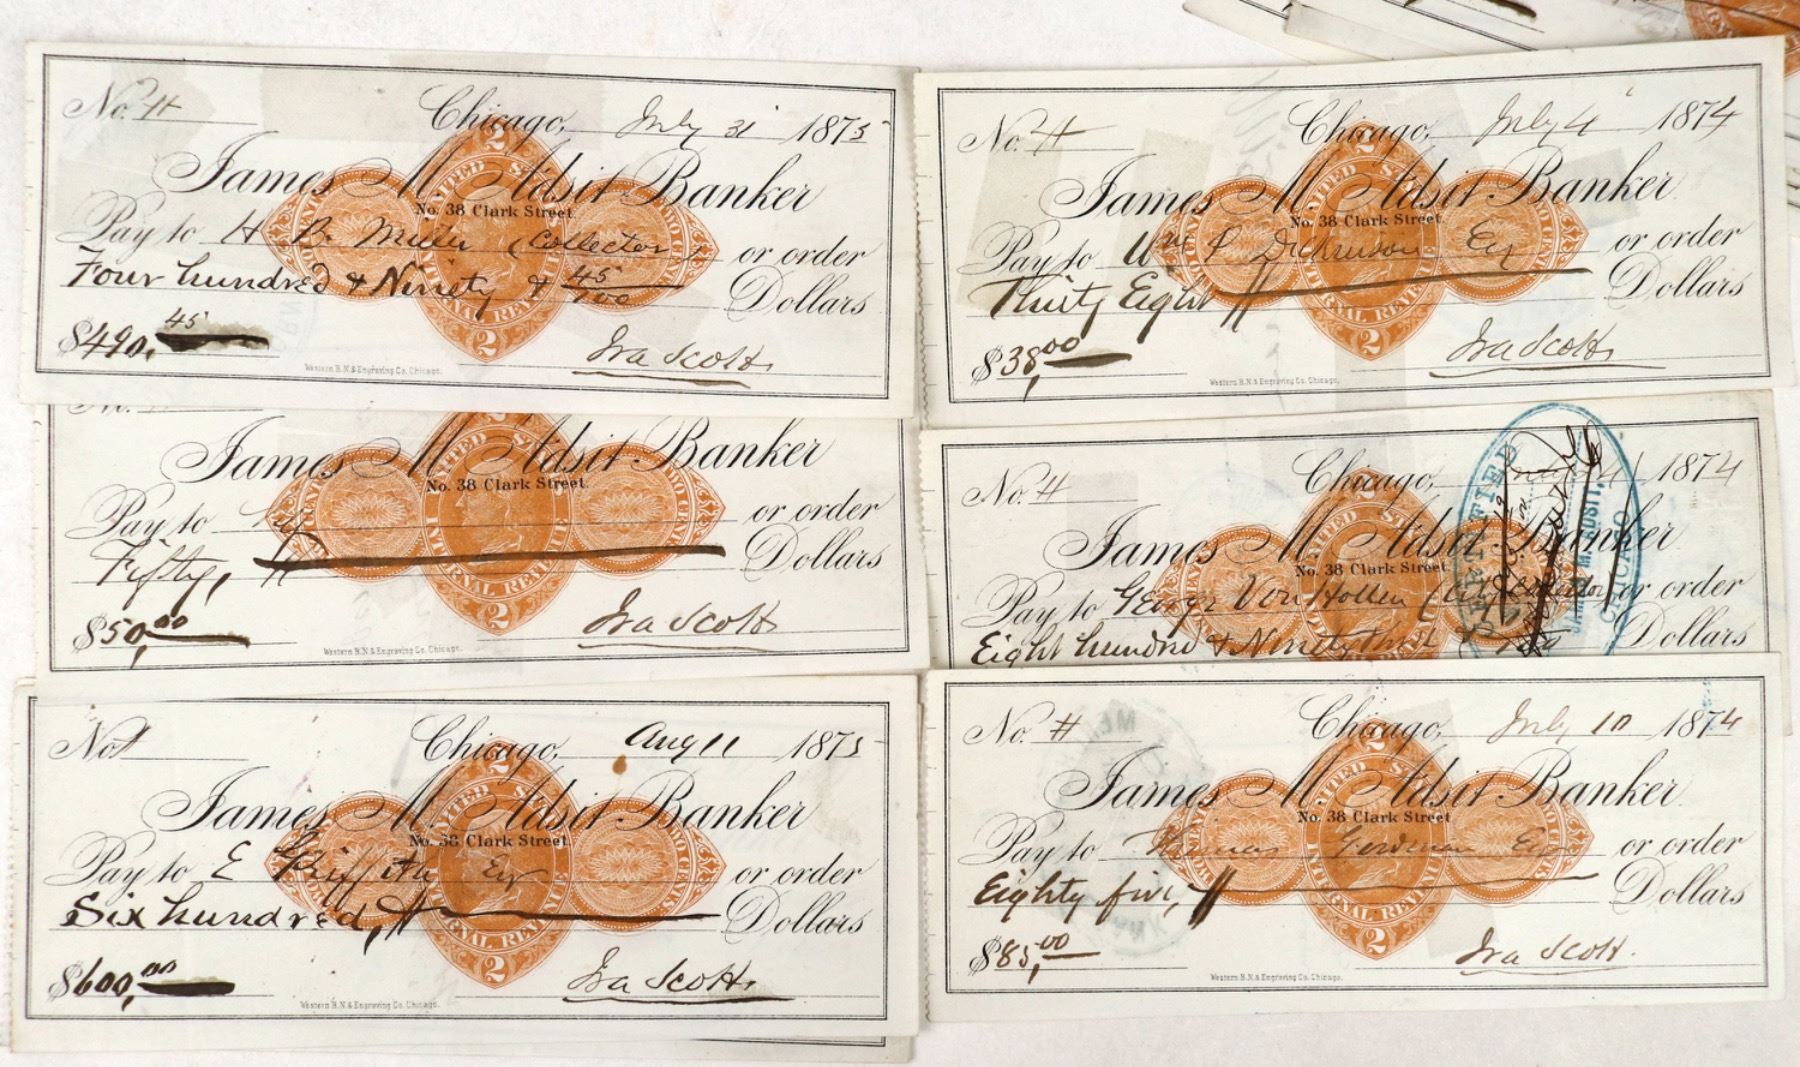 No. #
Chicago, July 31 1875
James M. Adsit Banker
No. 38 Clark Street.
Pay to H B Miller (Collector) or order
Four hundred & Ninety & 45/100 Dollars
$490.45
Ira Scott
Western B.N. & Engraving Co. Chicago.
No. #
Chicago, July 4 1874
James M. Adsit Banker
No. 38 Clark Street.
Pay to Wm P Dickinson Esq or order
Thirty Eight Dollars
$38,00
Ira Scott
Western B.N. & Engraving Co. Chicago.
No.
James M. Adsit Banker
No. 38 Clark Street.
Pay to or order
Fifty, Dollars
$50,00
Ira Scott
Western B.N. & Engraving Co. Chicago.
No. #
Chicago, 1874
James M. Adsit Banker
No. 38 Clark Street.
Pay to George Von Hollen (City Collector) or order
Eight hundred & Ninety three Dollars
CERTIFIED
JAMES M. ADSIT,
CHICAGO
No. #
Chicago, Aug 11 1875
James M. Adsit Banker
No. 38 Clark Street.
Pay to E Griffith Esq or order
Six hundred, Dollars
$600,00
Ira Scott
Western B.N. & Engraving Co. Chicago.
No. #
Chicago, July 10 1874
James M. Adsit Banker
No. 38 Clark Street.
Pay to Thomas Goodman Esq or order
Eighty five, Dollars
$85,00
Ira Scott.
Western B.N. & Engraving Co. Chicago.
UNITED STATES
INTERNAL REVENUE
2
TWO CENTS